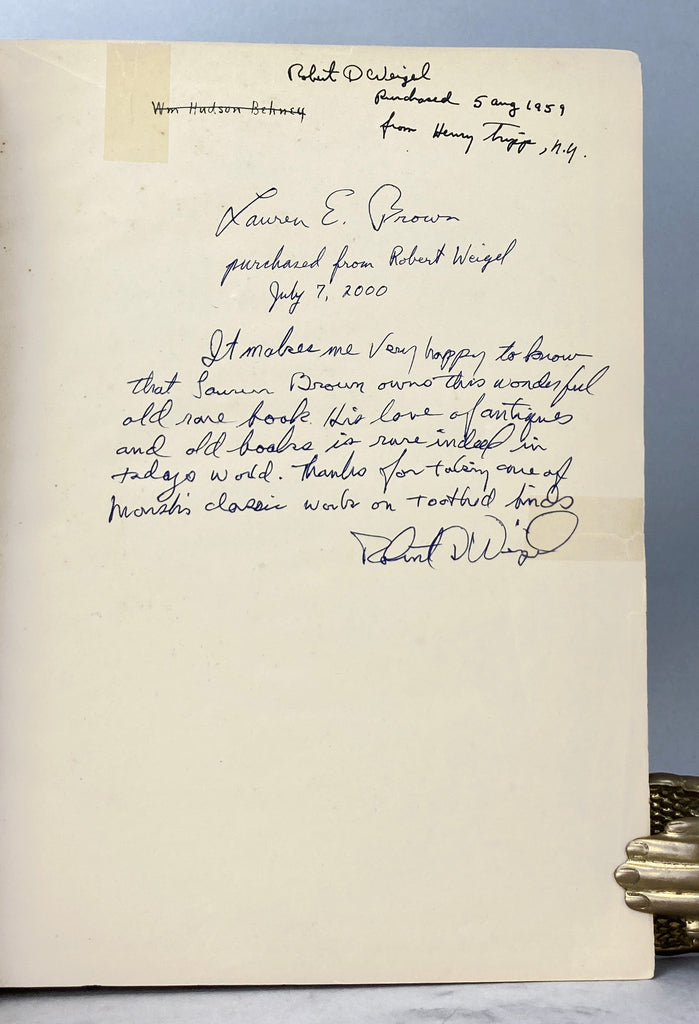 Robert D Weigel
Wm Hudson Behney
Purchased 5 aug 1959
from Henry Tripp, N.Y.
Lauren E. Brown
purchased from Robert Weigel
July 7, 2000
It makes me very happy to know
that Lauren Brown owns this wonderful
old rare book. His love of antiques
and old books is rare indeed in
todays world. Thanks for taking care of
Marsh's classic work on toothed birds
Robert D Weigel